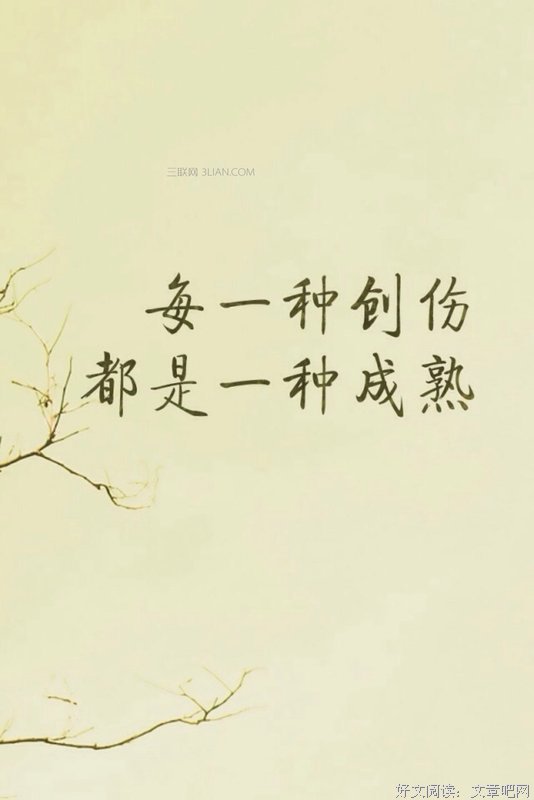 三联网 3LIAN.COM
每一种创伤
都是一种成熟
好文阅读：文章吧网